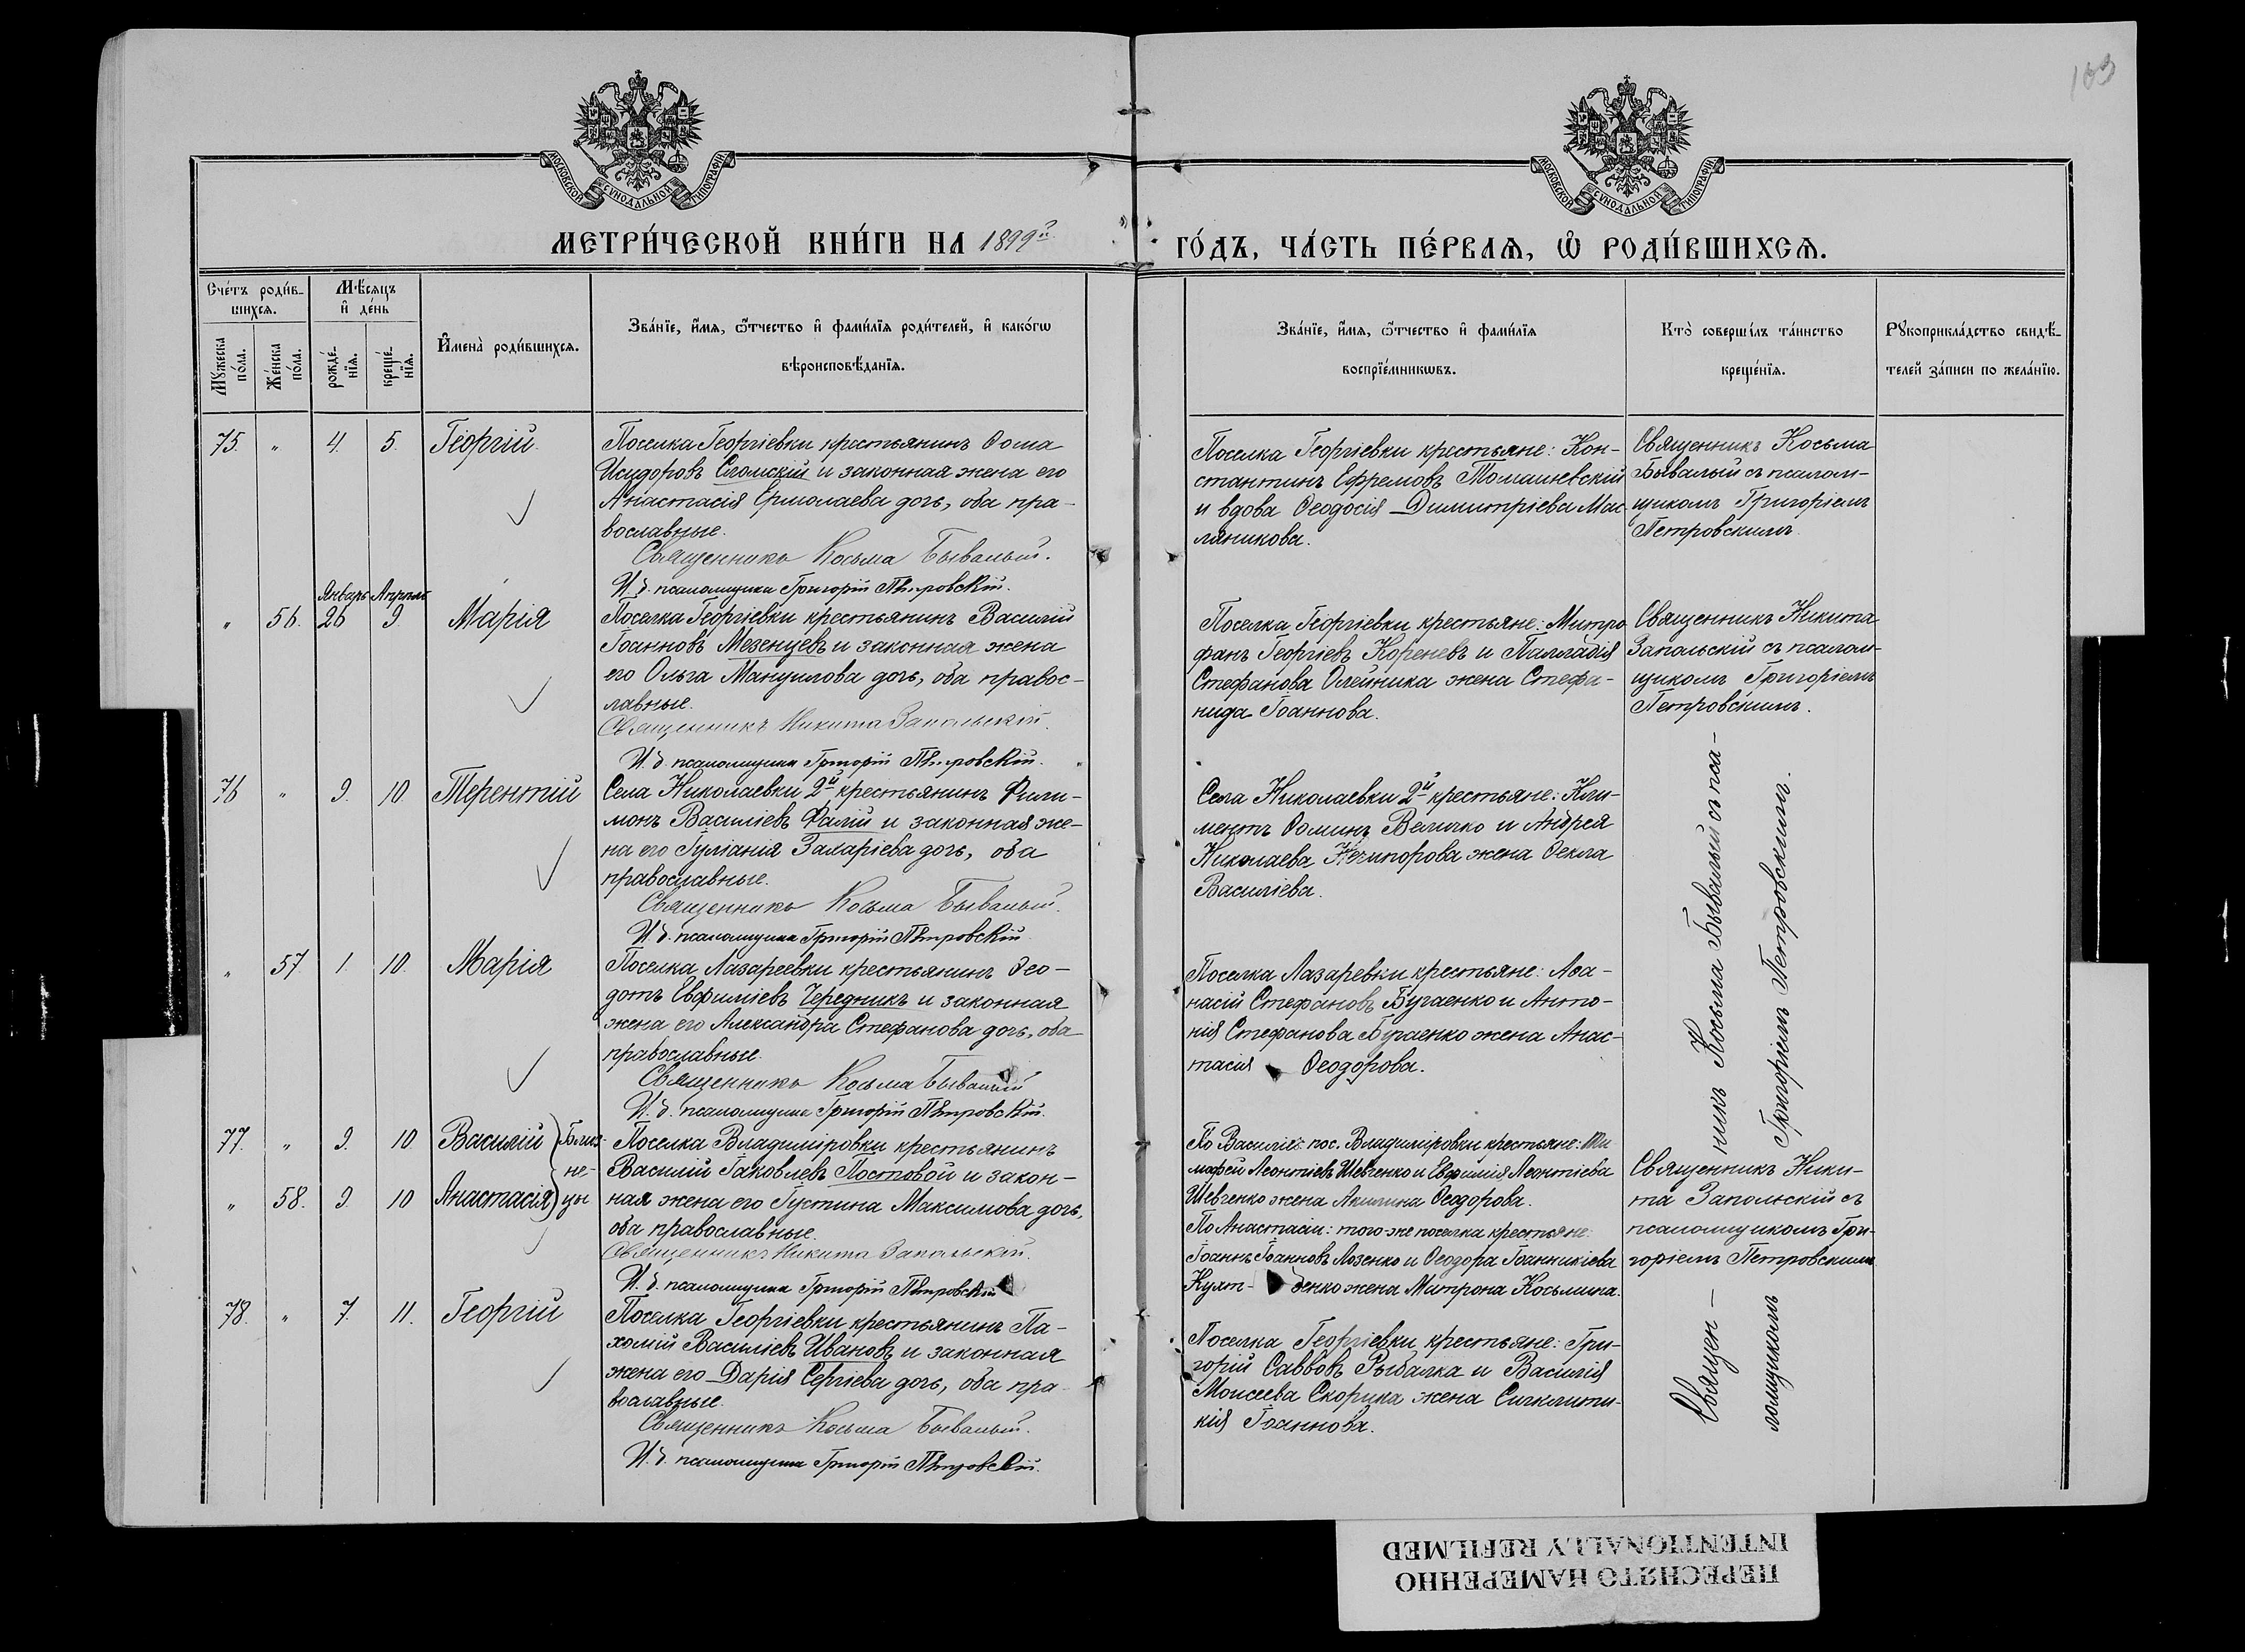 103
МОСКОВСКОЙ СѴНОДАЛЬНОЙ ТИПОГРАФІИ
МОСКОВСКОЙ СѴНОДАЛЬНОЙ ТИПОГРАФІИ
МЕТРИ́ЧЕСКОЙ КНИ́ГИ НА 1899й
ГО́ДЪ, ЧА́СТЬ ПЕ́РВАЯ, Ѡ РОДИ́ВШИХСЯ.
Сче́тъ роди́в-
шихся.
Мꙋ́жеска по́ла.
Же́нска по́ла.
Мѣ́сяцъ и҆ де́нь
рожде́-
нїя.
креще́-
нїя.
И҆мена̀ роди́вшихся.
Зва́нїе, и҆́мя, ѻ҆́тчество и҆ фами́лїя роди́телей, и҆ како́гѡ
вѣроисповѣ́данїя.
Зва́нїе, и҆́мя, ѻ҆́тчество и҆ фами́лїя
воспрїе́мникѡвъ.
Кто̀ соверши́лъ та́инство
креще́нїя.
Рꙋкоприкла́дство свидѣ́-
телей за́писи по жела́нїю.
75. " 4. 5. Георгій.
Поселка Георгіевки крестьянинъ Ѳома
Исидоровъ Сломскій и законная жена его
Анастасія Ермолаева дочь, оба пра-
вославные.
Священникъ Косьма Бывалый.
И. д. псаломщика Григорій Петровскій.
Поселка Георгіевки крестьяне: Кон-
стантинъ Ефремовъ Томашевскій
и вдова Ѳеодосія Димитріева Мас-
ляникова.
Священникъ Косьма
Бывалый съ псалом-
щикомъ Григоріемъ
Петровскимъ.
Январь Апрѣль
" 56. 26 9 Марія
Поселка Георгіевки крестьянинъ Василій
Іоанновъ Мезенцевъ и законная жена
его Ольга Мануилова дочь, оба правос-
лавные.
Священникъ Никита Запольскій.
И. д. псаломщика Григорій Петровскій.
Поселка Георгіевки крестьяне: Митро
фанъ Георгіевъ Кореневъ и Палладія
Стефанова Олейника жена Стефа-
нида Іоаннова.
Священникъ Никита
Запольскій съ псалом-
щикомъ Григоріемъ
Петровскимъ.
76 " 9. 10. Терентій
Села Николаевки 2й крестьянинъ Фили-
монъ Василіевъ Фалій и законная же-
на его Іуліанія Захаріева дочь, оба
православные.
Священникъ Косьма Бывалый.
И. д. псаломщика Григорій Петровскій.
Села Николаевки 2й крестьяне: Кли-
ментъ Ѳоминъ Величко и Андрея
Николаева Нечипорова жена Ѳекла
Василіева.
" 57 1. 10. Марія
Поселка Лазареевки крестьянинъ Ѳео-
дотъ Евфиміевъ Чередникъ и законная
жена его Александра Стефанова дочь, оба
православные.
Священникъ Косьма Бывалый
И. д. псаломщика Григорій Петровскій.
Поселка Лазаревки крестьяне: Аѳа-
насій Стефановъ Бугаенко и Анто-
нія Стефанова Бугаенко жена Анас-
тасія Ѳеодорова.
77. " 9. 10 Василій
" 58. 9. 10 Анастасія
Близ-
не-
цы
Поселка Владиміровки крестьянинъ
Василій Іаковлевъ Постовой и закон-
ная жена его Іустина Максимова дочь,
оба православные.
Священникъ Никита Запольскій.
И. д. псаломщика Григорій Петровскій
По Василіѣ: пос. Владиміровки крестьяне: Ти
мофей Леонтіевъ Шевченко и Евфимія Леонтіева
Шевченко жена Акилина Ѳеодорова.
По Анастасіи: того-же поселка крестьяне:
Іоаннъ Іоанновъ Лозенко и Ѳеодора Іоанникіева
денко жена Матрона Косьмина.
Священникъ Ники-
та Запольскій съ
псаломщикомъ Гри-
горіемъ Петровскимъ
78. " 7. 11. Георгій
Поселка Георгіевки крестьянинъ Па-
хомій Василіевъ Ивановъ и законная
жена его Дарія Сергіева дочь, оба пра-
вославные.
Священникъ Косьма Бывалый.
И. д. псаломщика Григорій Петровскій.
Поселка Георгіевки крестьяне: Гри-
горій Саввовъ Рыбалка и Василія
Моисеева Скорика жена Синклити-
кія Іоаннова.
Священ-никъ Косьма Бывалый съ пса-
ломщикомъ Григоріемъ Петровскимъ.
ПЕРЕСНЯТО НАМЕРЕННО
INTENTIONALLY REFILMED